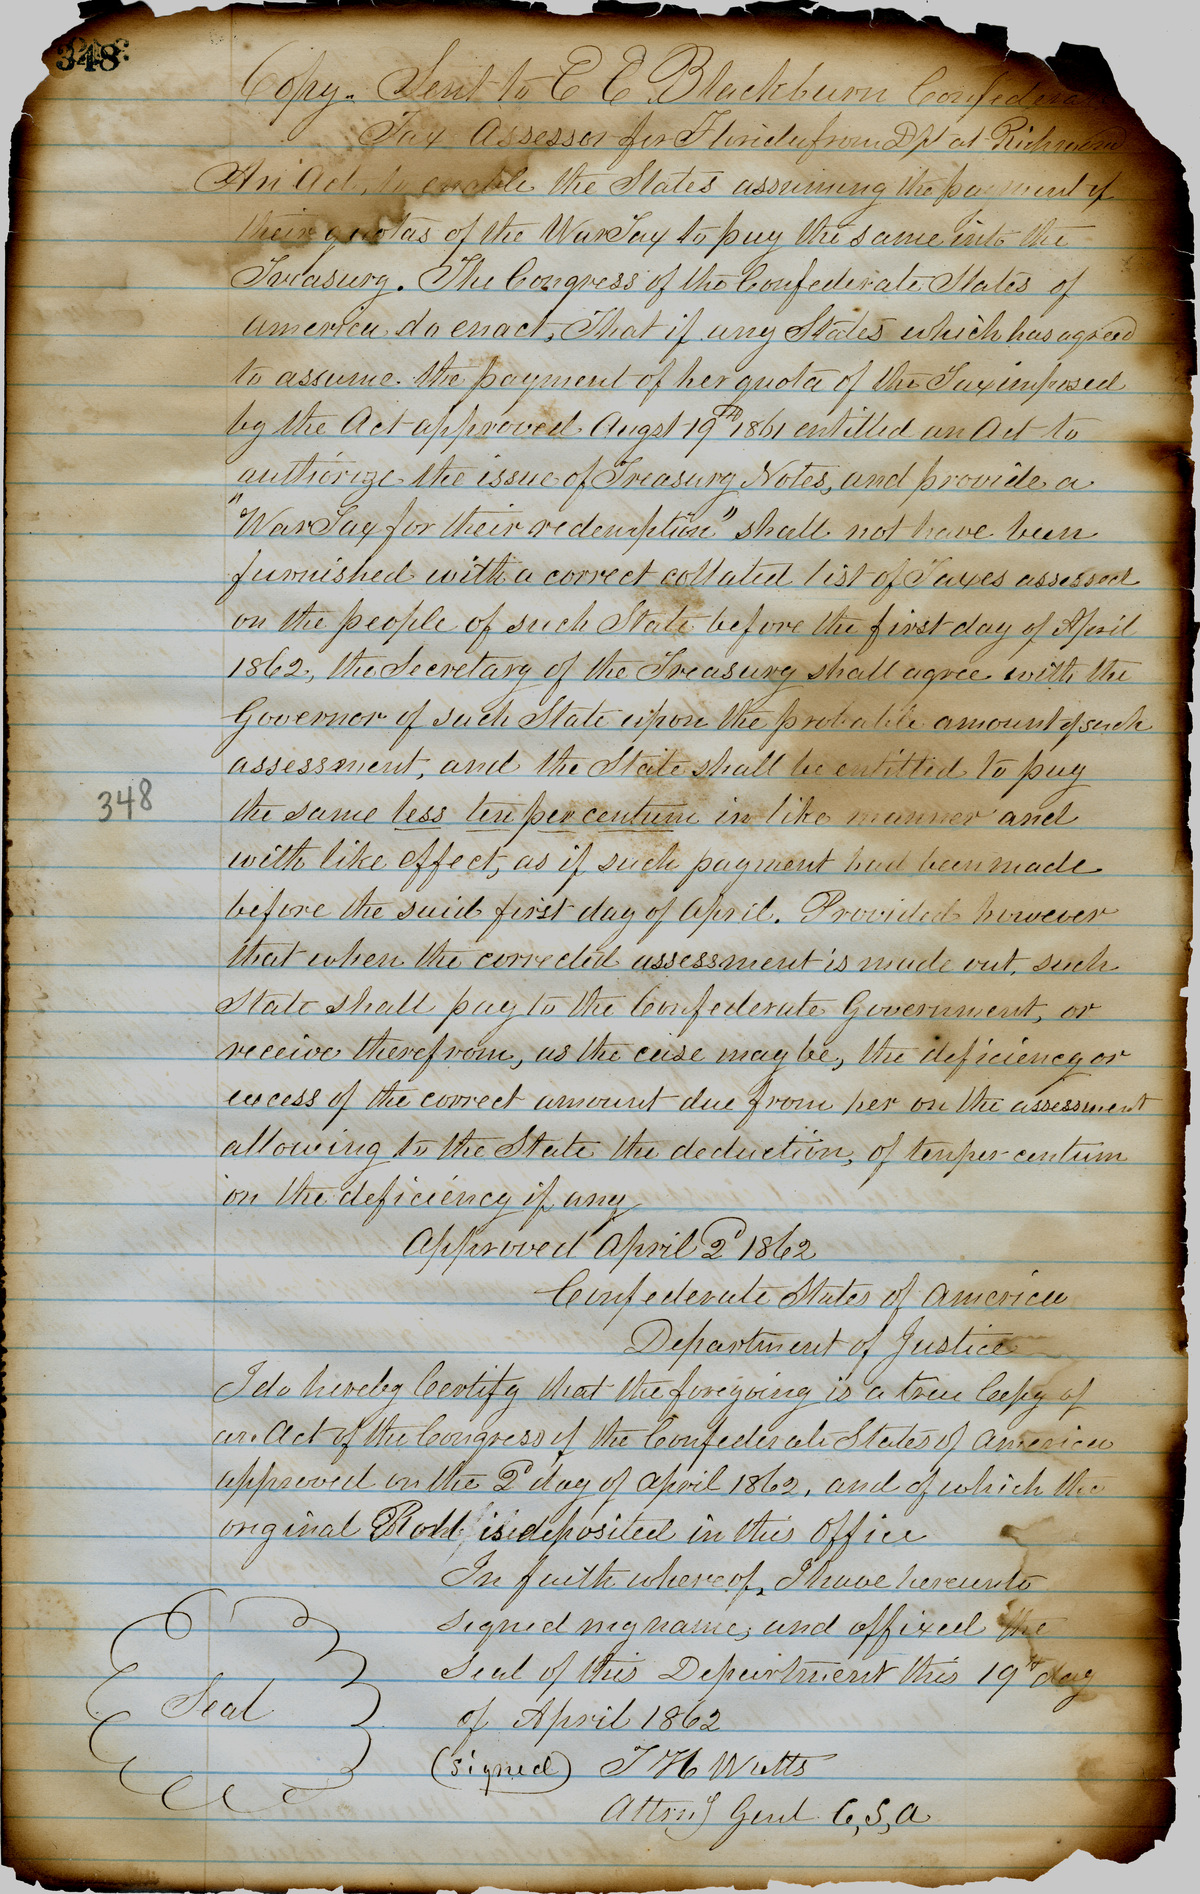 348
Copy. Sent to E E Blackburn Confedera
Tax Assessor for Florida from Dpt at Richmond
An Act, to enable the States assuming the payment of
their quotas of the War Tax to pay the same into the
Treasury. The Congress of the Confederate States of
America do enact, That if any States which has agreed
to assume the payment of her quota of the Tax imposed
by the Act approved Augst 19th 1861 entitled an Act to
authorize the issue of Treasury Notes, and provide a
"War Tax for their redemption" shall not have been
furnished with a correct collated list of Taxes assessed
on the people of such State before the first day of April
1862, the Secretary of the Treasury shall agree with the
Governor of such State upon the probable amount of such
assessment, and the State shall be entitled to pay
348
the same less ten per centum in like manner and
with like effect, as if such payment had been made
before the said first day of April. Provided however
that when the corrected assessment is made out, such
State shall pay to the Confederate Government, or
receive therefrom, as the case may be, the deficiency or
excess of the correct amount due from her on the assessment
allowing to the State the deduction, of ten per centum
on the deficiency if any
Approved April 2d 1862
Confederate States of America
Department of Justice
I do hereby Certify that the foregoing is a true Copy of
an Act of the Congress of the Confederate States of America
approved on the 2d day of April 1862, and of which the
original Roll is deposited in this Office
In faith whereof, I have hereunto
signed my name, and affixed the
Seal of this Department this 19th day
of April 1862
Seal
(signed) T H Watts
Attny Genl C, S, A